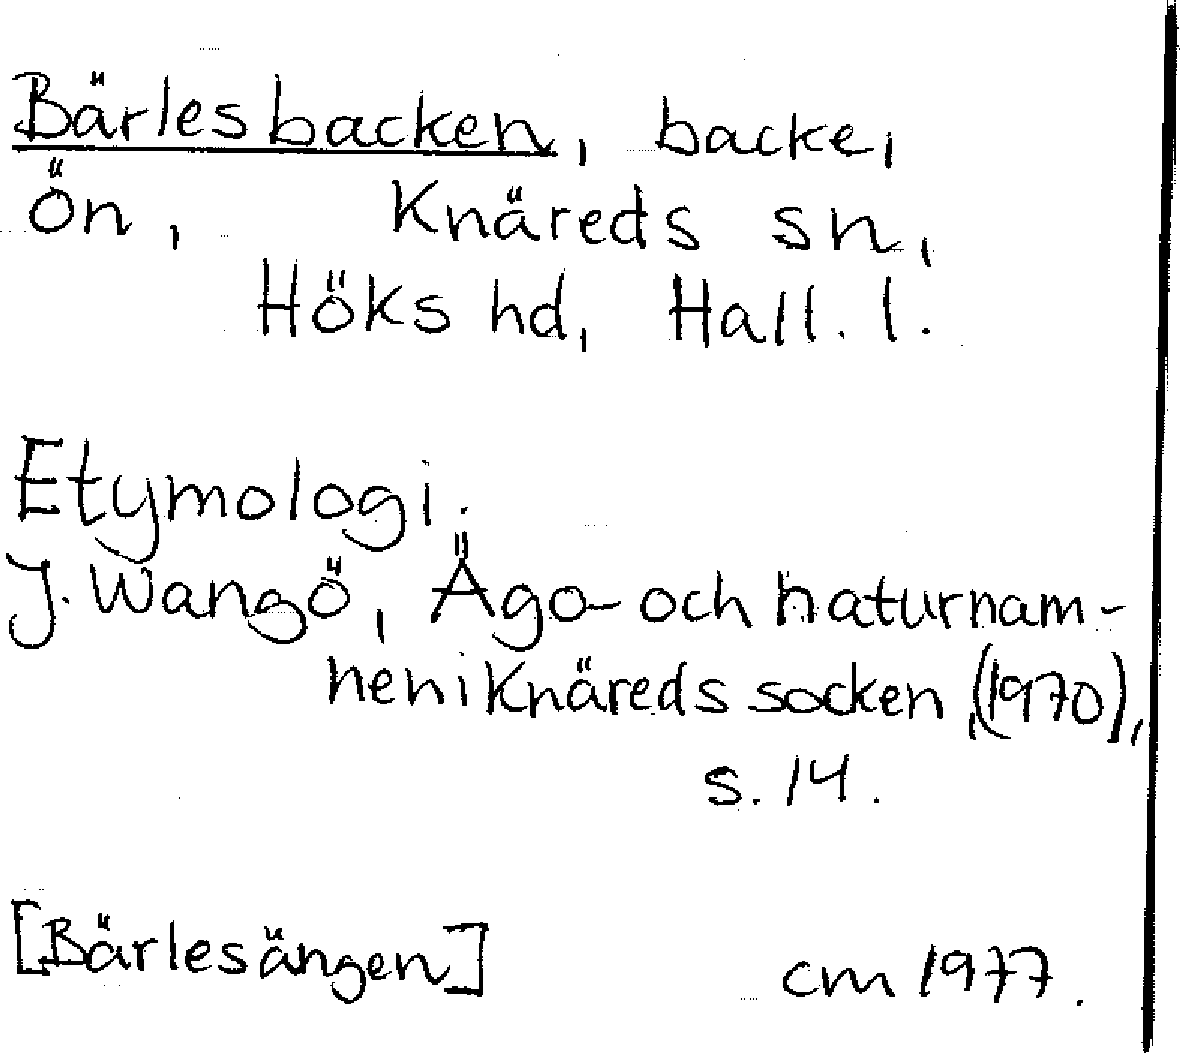 Bärlesbacken, backe,
Ön, Knäreds sn,
Höks hd, Hall. l.
Etymologi.
J. Wangö, Ägo- och naturnam-
nen i Knäreds socken, (1970),
s. 14.
[Bärlesängen] cm 1977.